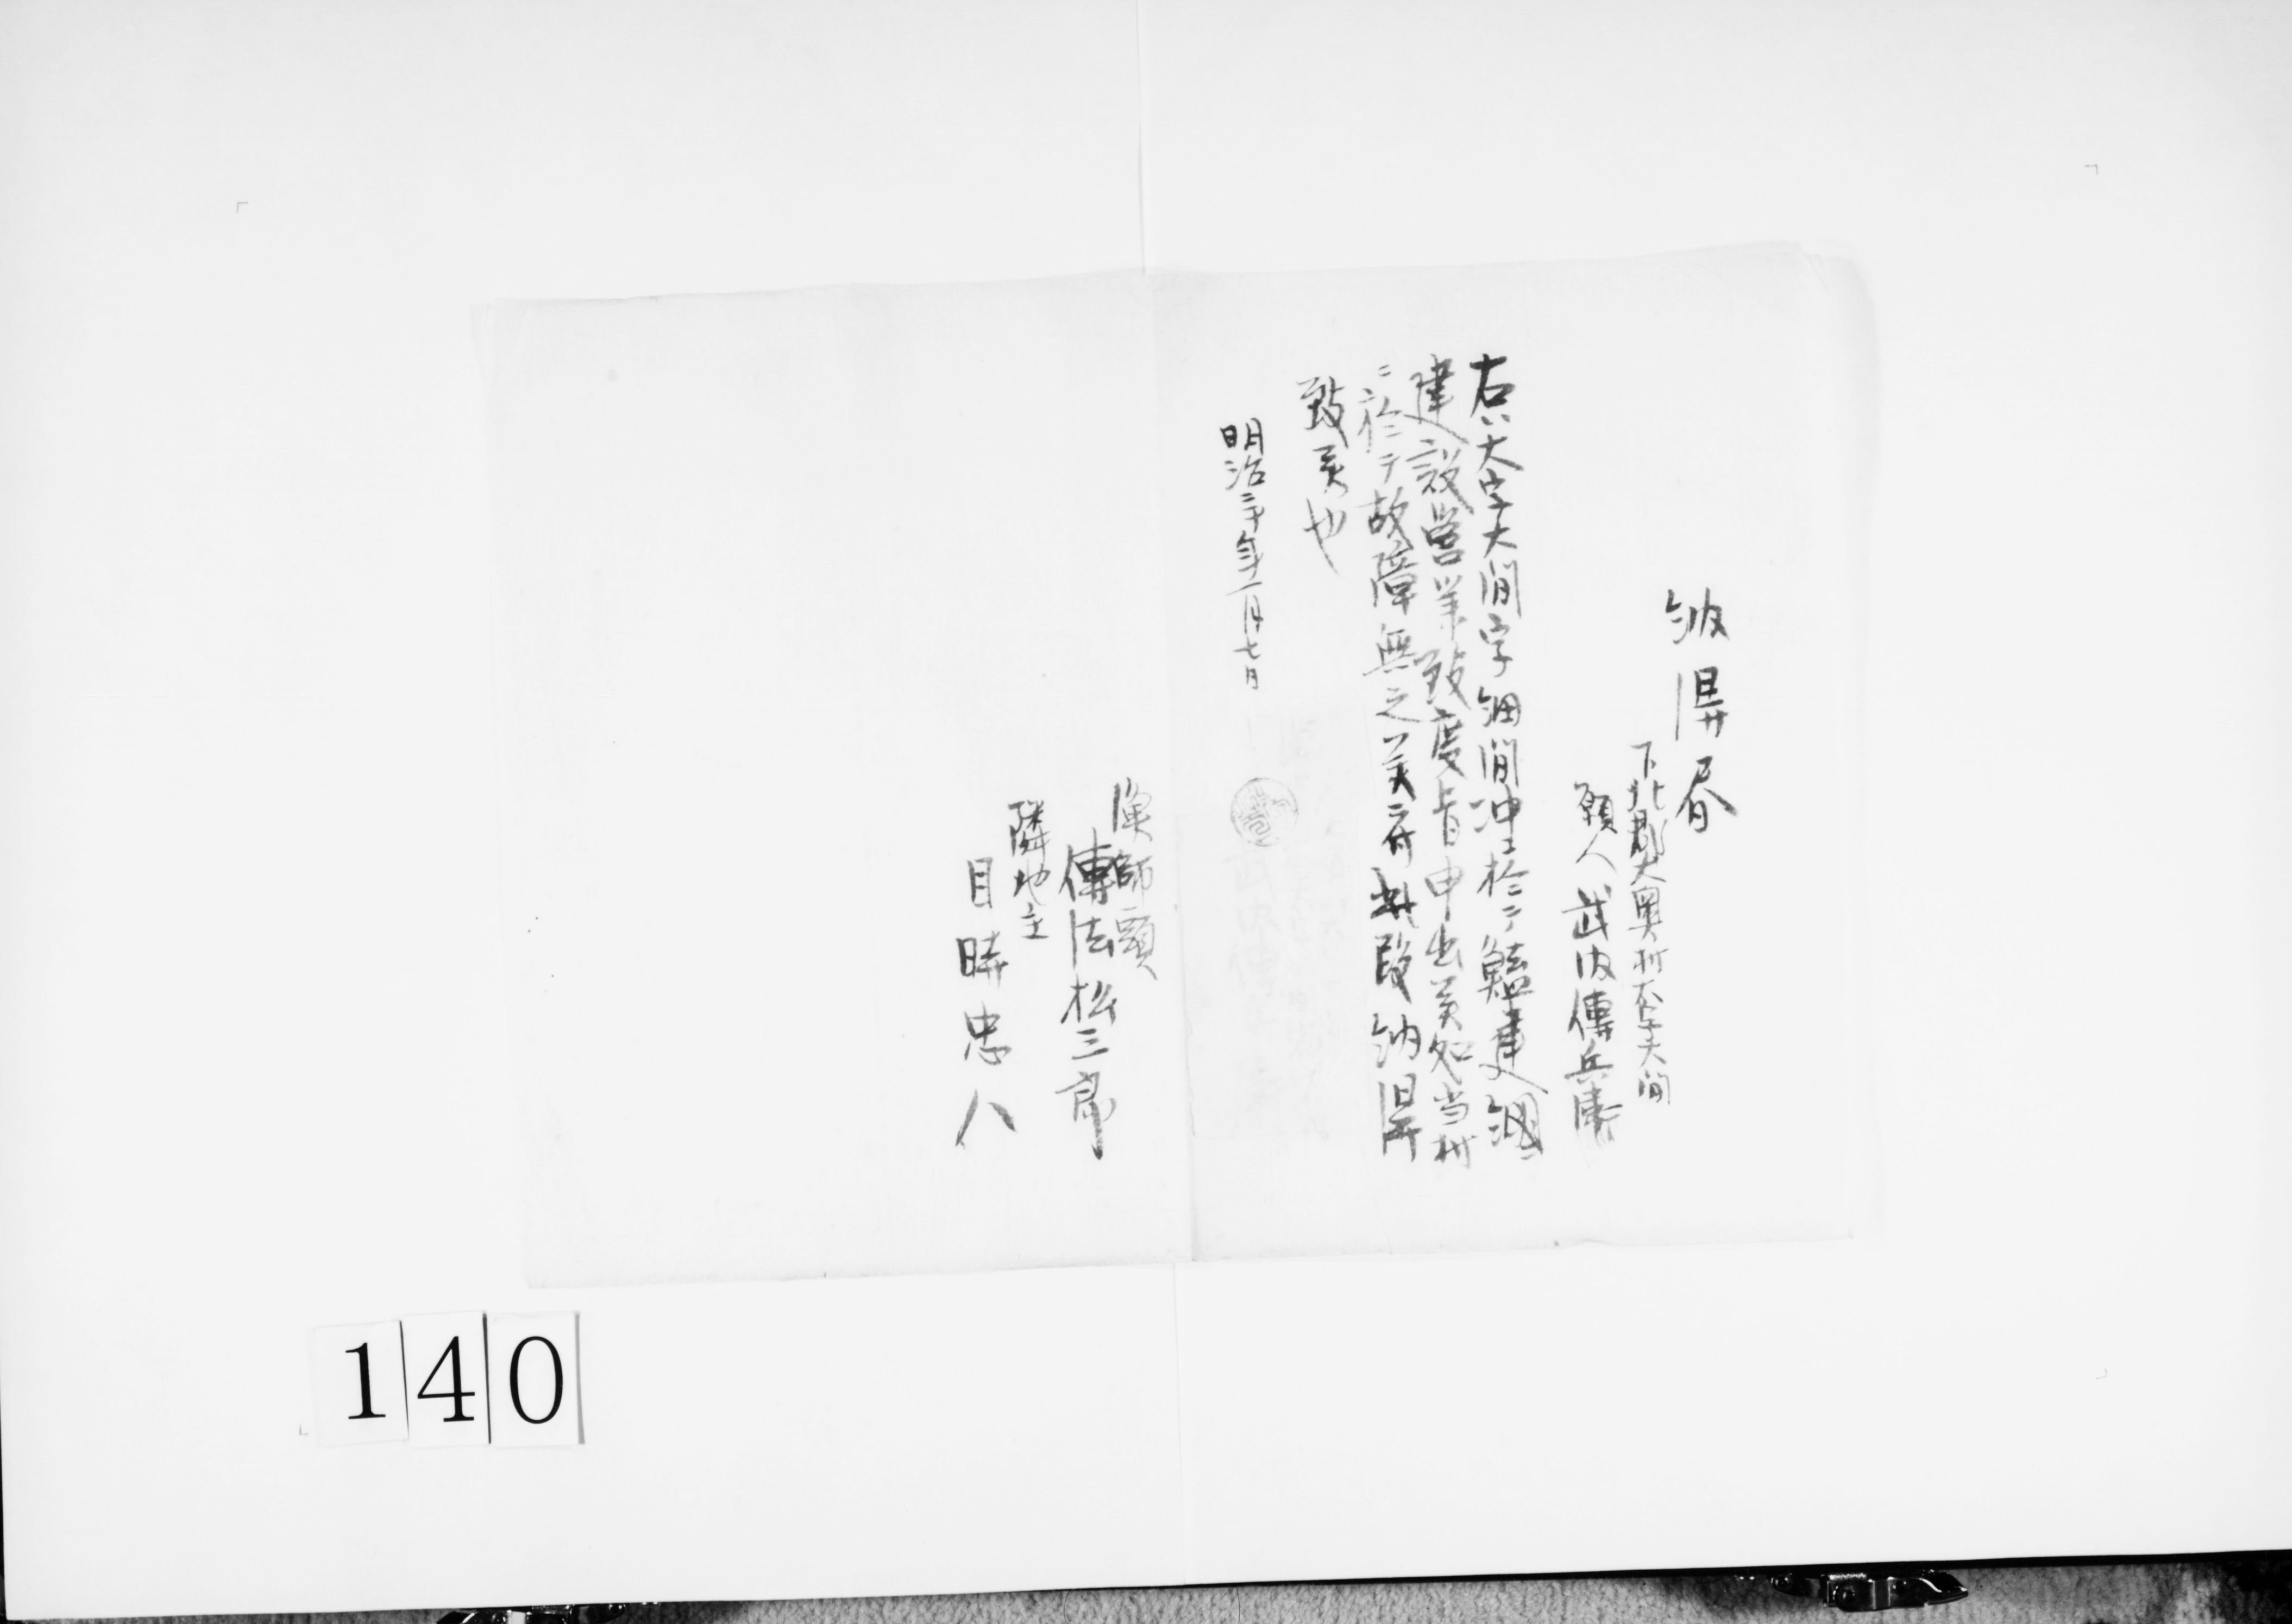 納得書
下北郡大奥村大字大間
願人武内傳兵衛
右ハ大字大間字細間沖ニ於テ鱈建網
建設営業致度旨申出候処当村
ニ於テ故障無之候ニ付此段納得
致候也
明治二十年一月七日
漁師頭
傳法松三郎
隣地主
目時忠八
140